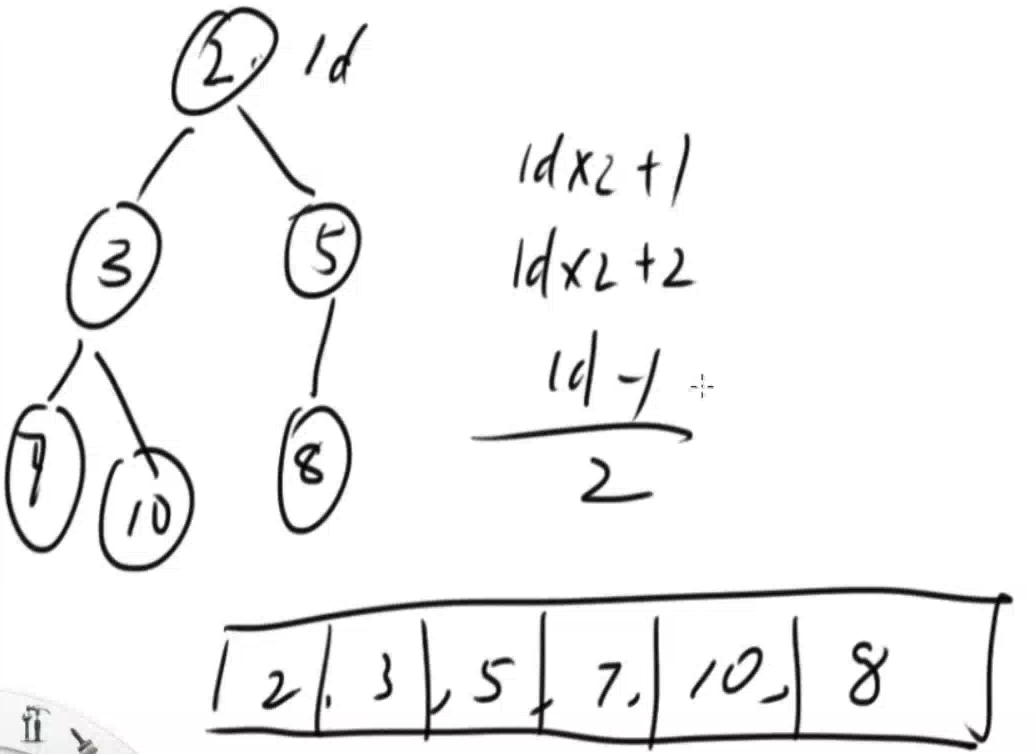 2 id
3 5
7 10 8
id×2+1
id×2+2
id-1
2
2, 3, 5, 7, 10, 8